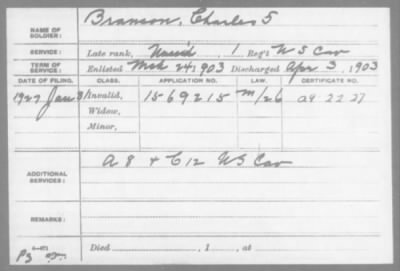 NAME OF SOLDIER: Branson, Charles S
SERVICE: Late rank, 1 Reg't U S Cav
TERM OF SERVICE: Enlisted Mch 24, 1903 Discharged Apr 3, 1903
DATE OF FILING. CLASS. APPLICATION NO. LAW. CERTIFICATE NO.
1927 Jan 3 Invalid, 1569215 M/26 a4 22 27
Widow,
Minor,
ADDITIONAL SERVICES: A 8 & C 12 U S Cav
REMARKS:
Died , 1 , at